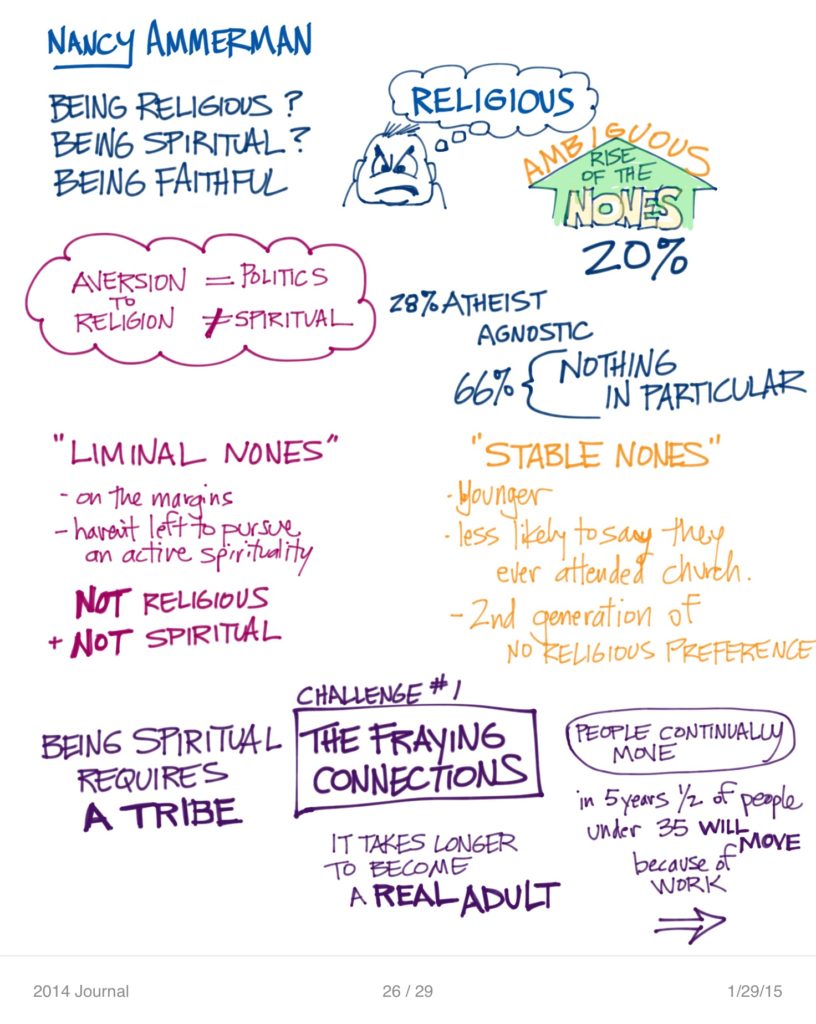 NANCY AMMERMAN
BEING RELIGIOUS?
BEING SPIRITUAL?
BEING FAITHFUL
RELIGIOUS
AMBIGUOUS
RISE
OF THE
NONES
20%
AVERSION = POLITICS
TO
RELIGION ≠ SPIRITUAL
28% ATHEIST
AGNOSTIC
66% { NOTHING
IN PARTICULAR
"LIMINAL NONES"
- on the margins
- haven't left to pursue
an active spirituality
NOT RELIGIOUS
+ NOT SPIRITUAL
"STABLE NONES"
- Younger
- less likely to say they
ever attended church.
- 2nd generation of
NO RELIGIOUS PREFERENCE
BEING SPIRITUAL
REQUIRES
A TRIBE
CHALLENGE #1
THE FRAYING
CONNECTIONS
IT TAKES LONGER
TO BECOME
A REAL ADULT
PEOPLE CONTINUALLY
MOVE
in 5 years 1/2 of people
under 35 WILL
MOVE
because of
WORK
2014 Journal
26 / 29
1/29/15